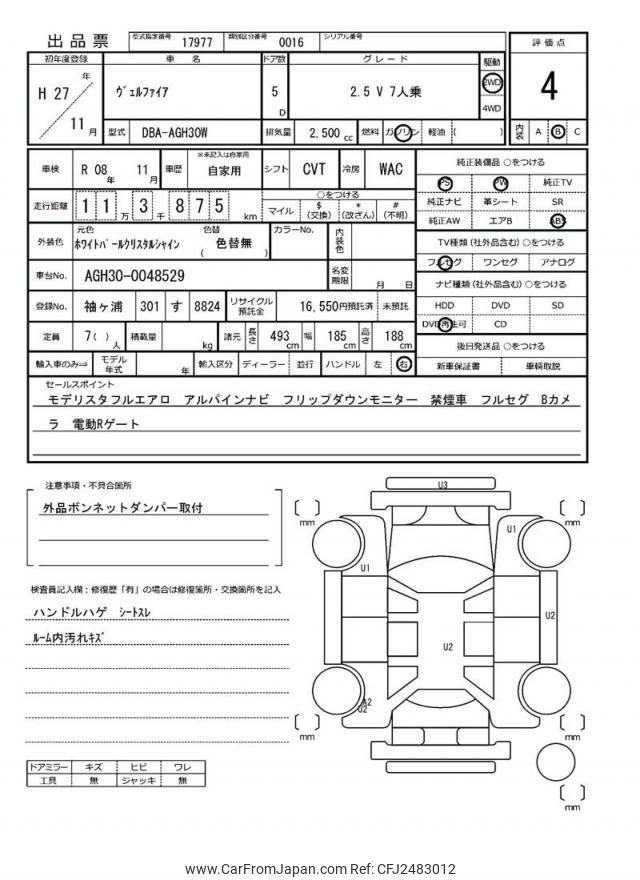 出品票 型式指定番号 17977 類別区分番号 0016 シリアル番号
初年度登録 車 名 ドア数 グレード 駆動 評価点
H 27 年 11 月 ヴェルファイア 5 D 2.5 V 7人乗 2WD 4WD 4
型式 DBA-AGH30W 排気量 2,500 cc 燃料 ガソリン 軽油 ( ) 内装 A B C
車検 R 08 年 11 月 車歴 ※未記入は自家用 自家用 シフト CVT 冷房 WAC
純正装備品 ○をつける
PS PW 純正TV
走行距離 1 1 万 3 千 8 7 5 km ○をつける
マイル $(交換) *(改ざん) #(不明)
純正ナビ 革シート SR
純正AW エアB ABS
外装色 元色 ホワイトパールクリスタルシャイン 色替 ( 色替無 ) カラーNo. 内装色
TV種類(社外品含む)○をつける
フルセグ ワンセグ アナログ
車台No. AGH30-0048529 名変期限 月 日
ナビ種類(社外品含む)○をつける
登録No. 袖ヶ浦 301 す 8824 リサイクル預託金 16,550円預託済 未預託
HDD DVD SD
DVD再生可 CD
定員 7( ) 人 積載量 kg 諸元 長さ 493 cm 幅 185 cm 高さ 188 cm
後日発送品 ○をつける
輸入車のみ⇒ モデル年式 年 輸入区分 ディーラー 並行 ハンドル 左 右
新車保証書 車輌取説
セールスポイント
モデリスタフルエアロ アルパインナビ フリップダウンモニター 禁煙車 フルセグ Bカメ
ラ 電動Rゲート
注意事項・不具合箇所
外品ボンネットダンパー取付
検査員記入欄：修復歴「有」の場合は修復箇所・交換箇所を記入
ハンドルハゲ シートスレ
ルーム内汚れキズ
ドアミラー キズ ヒビ ワレ
工具 無 ジャッキ 無
U3
U1
U1
U2
U2
A2
U2
mm
mm
mm
mm
mm
www.CarFromJapan.com Ref: CFJ2483012